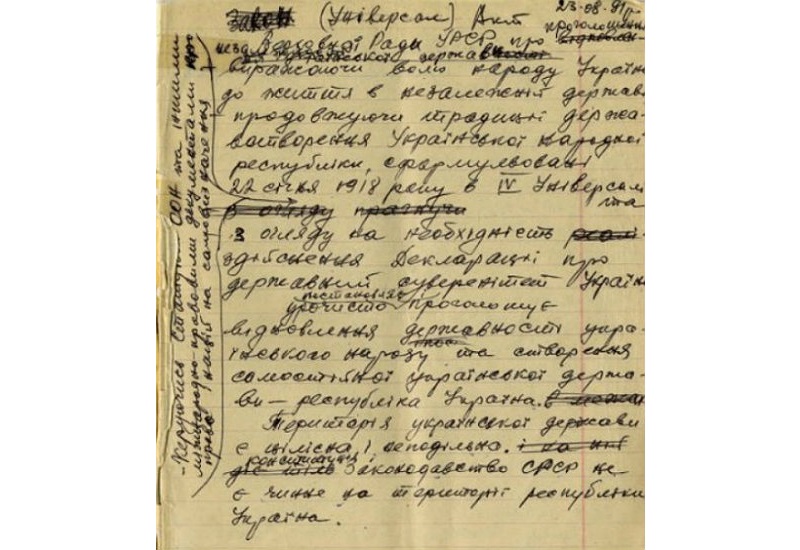 23-08-91р.
Закон (Універсал) Акт проголошення
Верховної Ради УРСР про
незалежної української держав
виражаючи волю народу Україн
до життя в незалежній держав
- продовжуючи традиції держа-
вотворення Української народної
республіки, сформульовані
22 січня 1918 року в IV Універсалі
з огляду прагнучи та
з огляду на необхідність
здійснення Декларації про
державний суверенітет Україн
постановляє
урочисто проголошує
відновлення державності укра-
їнського народу та створення
самостійної української держа-
ви - республіка Україна. в межах
Територія української держави
є цілісна і неподільна. і на ній
конституція і
діє тіль Законодавство СРСР не
є чинне на території республіки
Україна.
- Керуючись Статутом ООН та іншими
міжнародно-правовими документами про
право націй на самовизначення